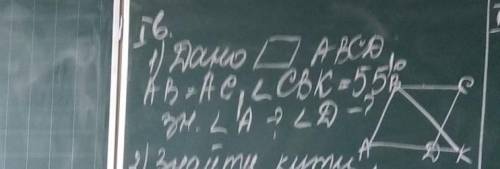 І в.
1) Дано ▱ ABCD.
AB = AC, ∠CBK = 55°
зн. ∠A - ? ∠D - ?
B C
A D K
2) Знайти кути